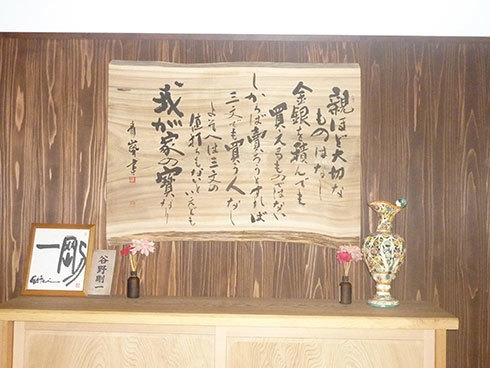 親ほど大切な
ものはなし
金銀を積んでも
買えるものではない
しからば賣ろうとすれば
三文でも買う人なし
よそへは三文の
値打ちもないといえども
我が家の寶なり
一剛
谷野剛一